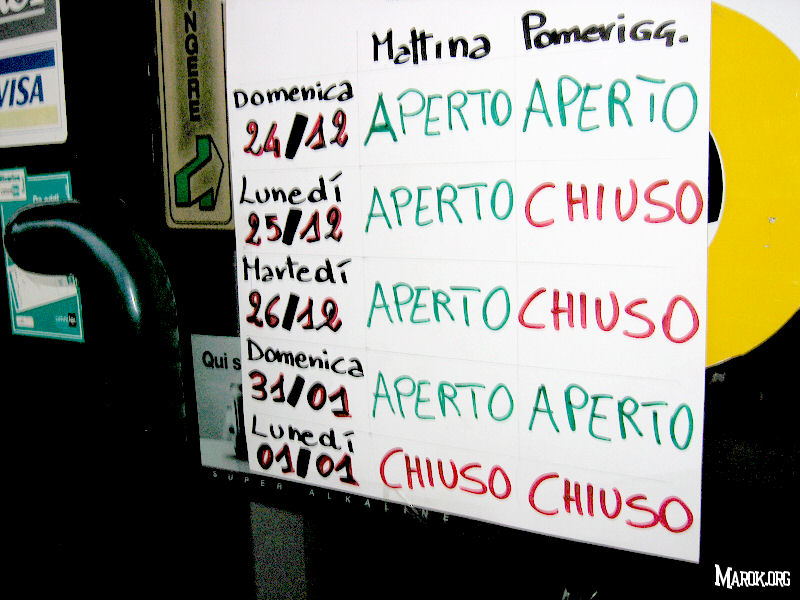 VISA
INGERE
Mattina Pomerigg.
Domenica
24/12 APERTO APERTO
Lunedí
25/12 APERTO CHIUSO
Martedí
26/12 APERTO CHIUSO
Qui s
Domenica
31/01 APERTO APERTO
Lunedí
01/01 CHIUSO CHIUSO
SUPER ALKALINE
MAROK.ORG